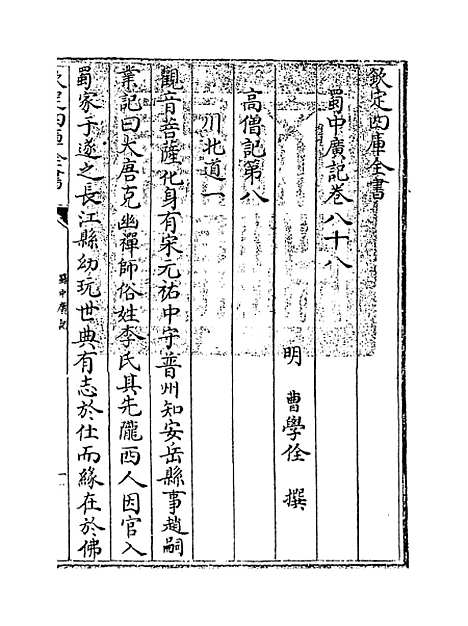 欽定四庫全書
蜀中廣記卷八十八
明 曹學佺 撰
高僧記第八
川北道一
觀音菩薩化身有宋元祐中守普州知安岳縣事趙嗣
業記曰大唐克幽禪師俗姓李氏其先隴西人因官入
蜀家于遂之長江縣幼玩世典有志於仕而緣在於佛
欽定四庫全書
蜀中廣記
一